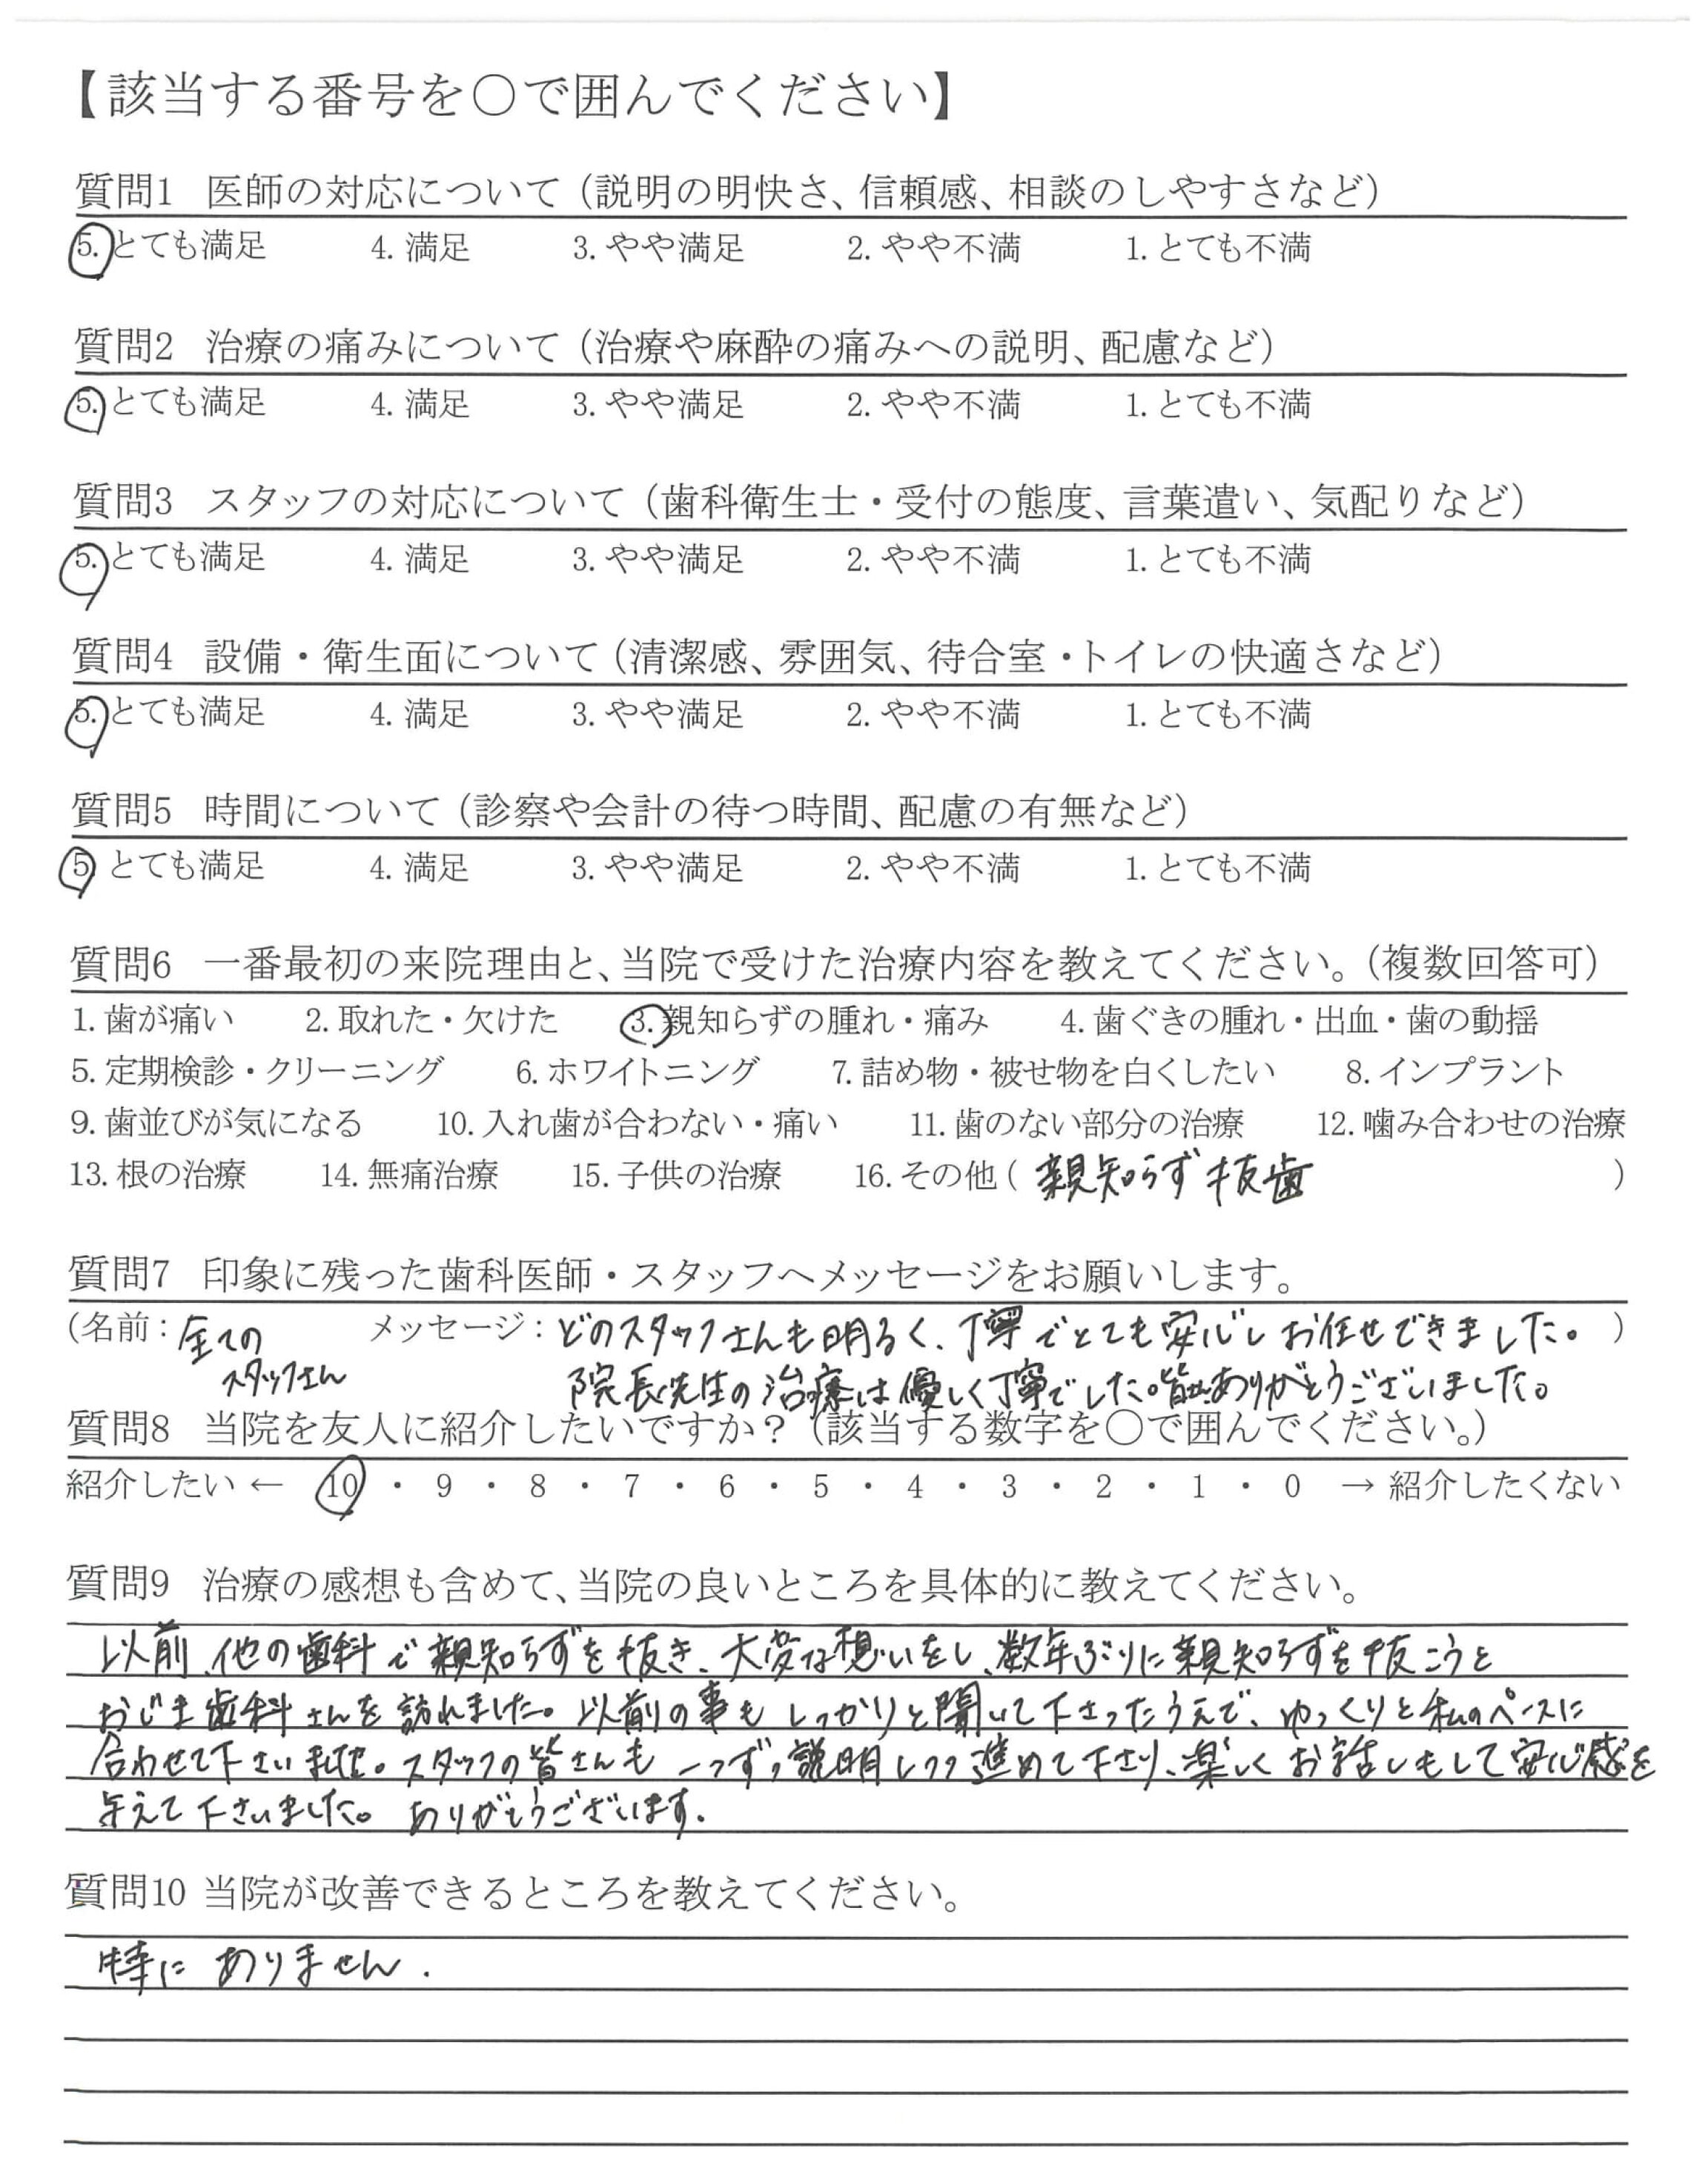 【該当する番号を〇で囲んでください】
質問1 医師の対応について（説明の明快さ、信頼感、相談のしやすさなど）
5. とても満足 4. 満足 3. やや満足 2. やや不満 1. とても不満
質問2 治療の痛みについて（治療や麻酔の痛みへの説明、配慮など）
5. とても満足 4. 満足 3. やや満足 2. やや不満 1. とても不満
質問3 スタッフの対応について（歯科衛生士・受付の態度、言葉遣い、気配りなど）
5. とても満足 4. 満足 3. やや満足 2. やや不満 1. とても不満
質問4 設備・衛生面について（清潔感、雰囲気、待合室・トイレの快適さなど）
5. とても満足 4. 満足 3. やや満足 2. やや不満 1. とても不満
質問5 時間について（診察や会計の待つ時間、配慮の有無など）
5 とても満足 4. 満足 3. やや満足 2. やや不満 1. とても不満
質問6 一番最初の来院理由と、当院で受けた治療内容を教えてください。（複数回答可）
1. 歯が痛い 2. 取れた・欠けた 3. 親知らずの腫れ・痛み 4. 歯ぐきの腫れ・出血・歯の動揺
5. 定期検診・クリーニング 6. ホワイトニング 7. 詰め物・被せ物を白くしたい 8. インプラント
9. 歯並びが気になる 10. 入れ歯が合わない・痛い 11. 歯のない部分の治療 12. 噛み合わせの治療
13. 根の治療 14. 無痛治療 15. 子供の治療 16. その他（ 親知らず抜歯 ）
質問7 印象に残った歯科医師・スタッフへメッセージをお願いします。
（名前：全ての メッセージ：どのスタッフさんも明るく、丁寧でとても安心しお任せできました。）
スタッフさん 院長先生の治療は優しく丁寧でした。皆さんありがとうございました。
質問8 当院を友人に紹介したいですか？（該当する数字を〇で囲んでください。）
紹介したい ← 10 ・ 9 ・ 8 ・ 7 ・ 6 ・ 5 ・ 4 ・ 3 ・ 2 ・ 1 ・ 0 → 紹介したくない
質問9 治療の感想も含めて、当院の良いところを具体的に教えてください。
以前、他の歯科で親知らずを抜き、大変な想いをし、数年ぶりに親知らずを抜こうと
おじま歯科さんを訪れました。以前の事もしっかりと聞いて下さったうえで、ゆっくりと私のペースに
合わせて下さいました。スタッフの皆さんも一つずつ説明しつつ進めて下さり、楽しくお話しもして安心感を
与えて下さいました。ありがとうございます。
質問10 当院が改善できるところを教えてください。
特にありません.